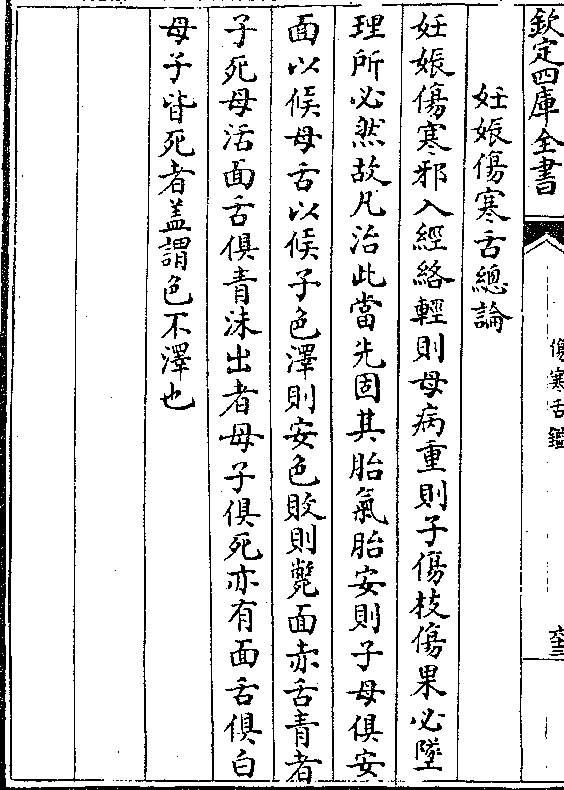 欽定四庫全書
傷寒舌鑑
妊娠傷寒舌總論
妊娠傷寒邪入經絡輕則母病重則子傷枝傷果必墜
理所必然故凡治此當先固其胎氣胎安則子母俱安
面以候母舌以候子色澤則安色敗則斃面赤舌青者
子死母活面舌俱青沫出者母子俱死亦有面舌俱白
母子皆死者盖謂色不澤也